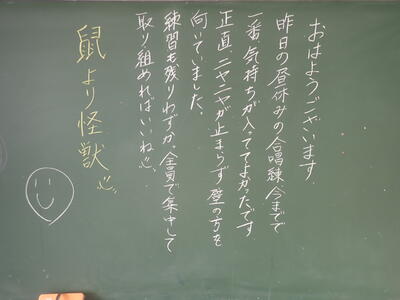 おはようございます.
昨日の昼休みの合唱練、今までで
一番気持ちが入っててよかったです.
正直、ニヤニヤが止まらず壁の方を
向いていました.
練習も残りわずか、全員で集中して
取り組めればいいね
鼠より怪獣